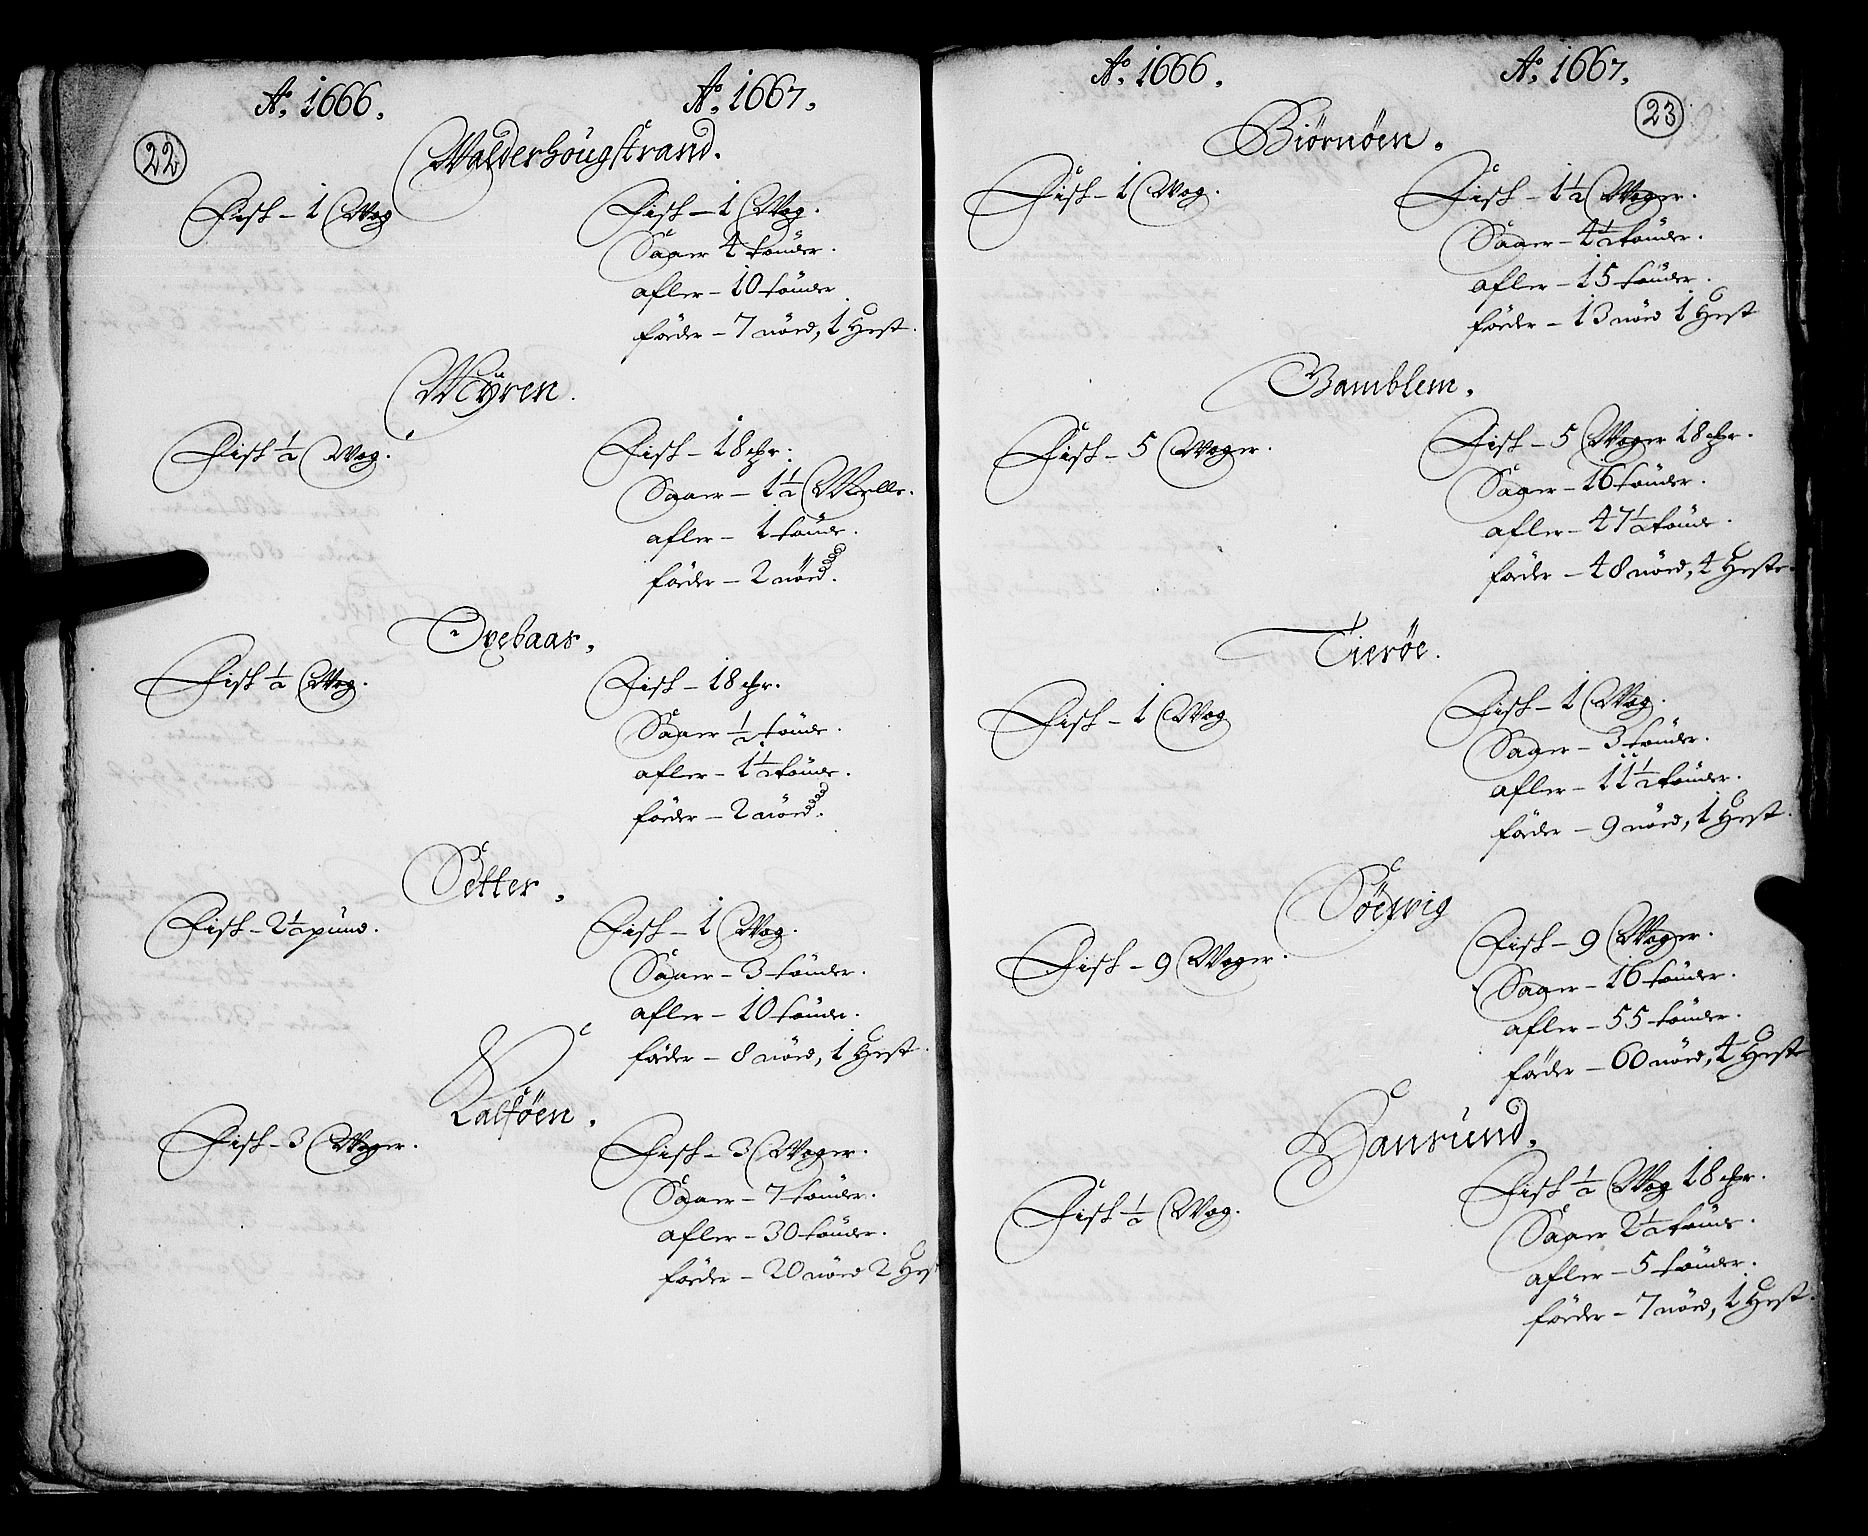 Ao. 1666. Ao. 1667.
22
Walderhougstrand.
Fisk - 1 Wog
Fisk - 1 Wog.
Saaer 4 tønder.
afler - 10 tønder
føder - 7 nød, 1 Hest.
Myren.
Fisk ½ Wog.
Fisk - 18 mr.
Saaer - 1½ Melle.
afler - 1 tønde.
føder - 2 nød.
Oxebaas.
Fisk ½ Wog.
Fisk - 18 mr.
Saaer ½ tønde.
afler - 1½ tønde.
føder - 2 nød.
Setter.
Fisk - 2½ pund.
Fisk - 1 Wog.
Saaer - 3 tønder.
afler - 10 tønder.
føder - 8 nød, 1 Hest.
Kalføen.
Fisk - 3 Woger.
Fisk - 3 Woger.
Saaer - 7 tønder.
afler - 30 tønder.
føder - 20 nød 2 Hest
Ao. 1666. Ao. 1667.
23
Biørnøen.
Fisk - 1 Wog.
Fisk - 1½ Woger.
Saaer - 4½ tønder.
afler - 15 tønder.
føder - 13 nød 1 Hest
Gamblem.
Fisk - 5 Woger.
Fisk - 5 Woger 18 mr.
Saaer - 16 tønder.
afler - 47½ tønde.
føder - 48 nød, 4 Heste.
Tierøe.
Fisk - 1 Wog
Fisk - 1 Wog.
Saaer - 3 tønder.
afler - 11½ tønder.
føder - 9 nød, 1 Hest.
Søevig
Fisk - 9 Woger.
Fisk - 9 Woger.
Saaer - 16 tønder.
afler - 55 tønder.
føder - 60 nød, 4 Heste
Hansund.
Fisk ½ Wog.
Fisk ½ Wog 18 mr.
Saaer 2½ tønde.
afler - 5 tønder.
føder - 7 nød, 1 Hest.